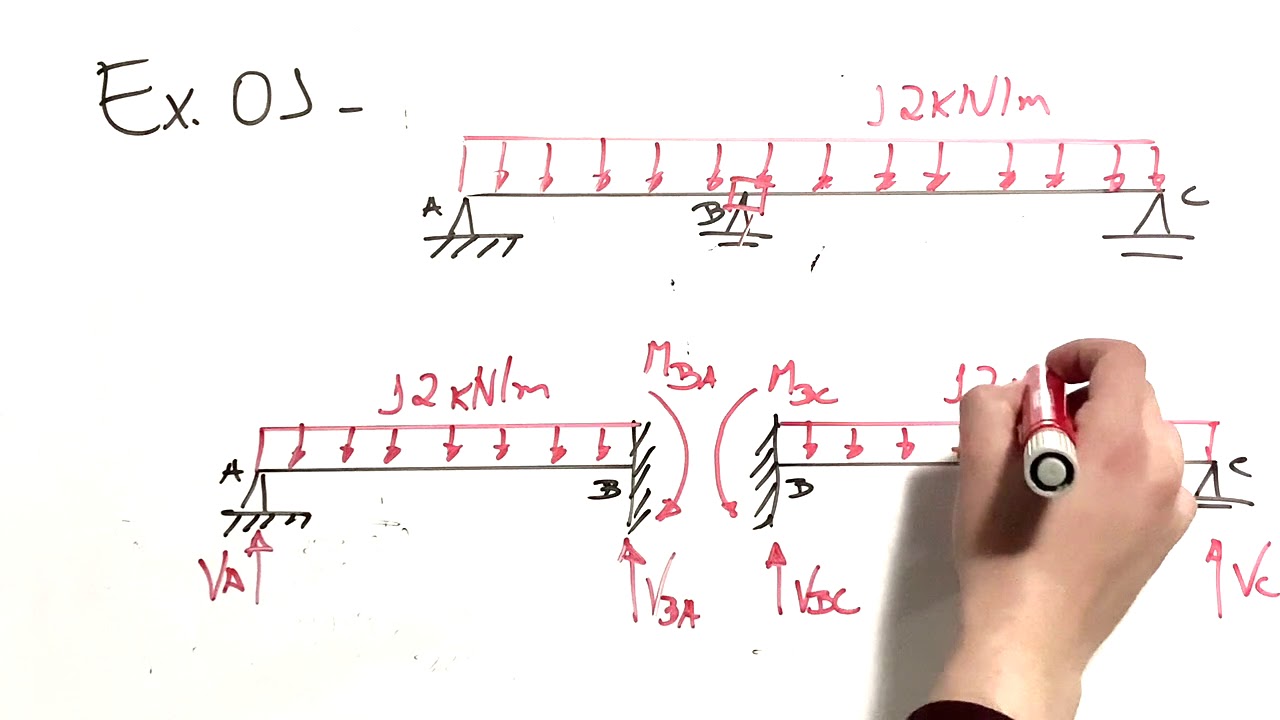 Ex. 01 -
12 kN/m
A
B
C
12 kN/m
M_BA
M_BC
12
A
B
B
C
V_A
V_BA
V_BC
V_C